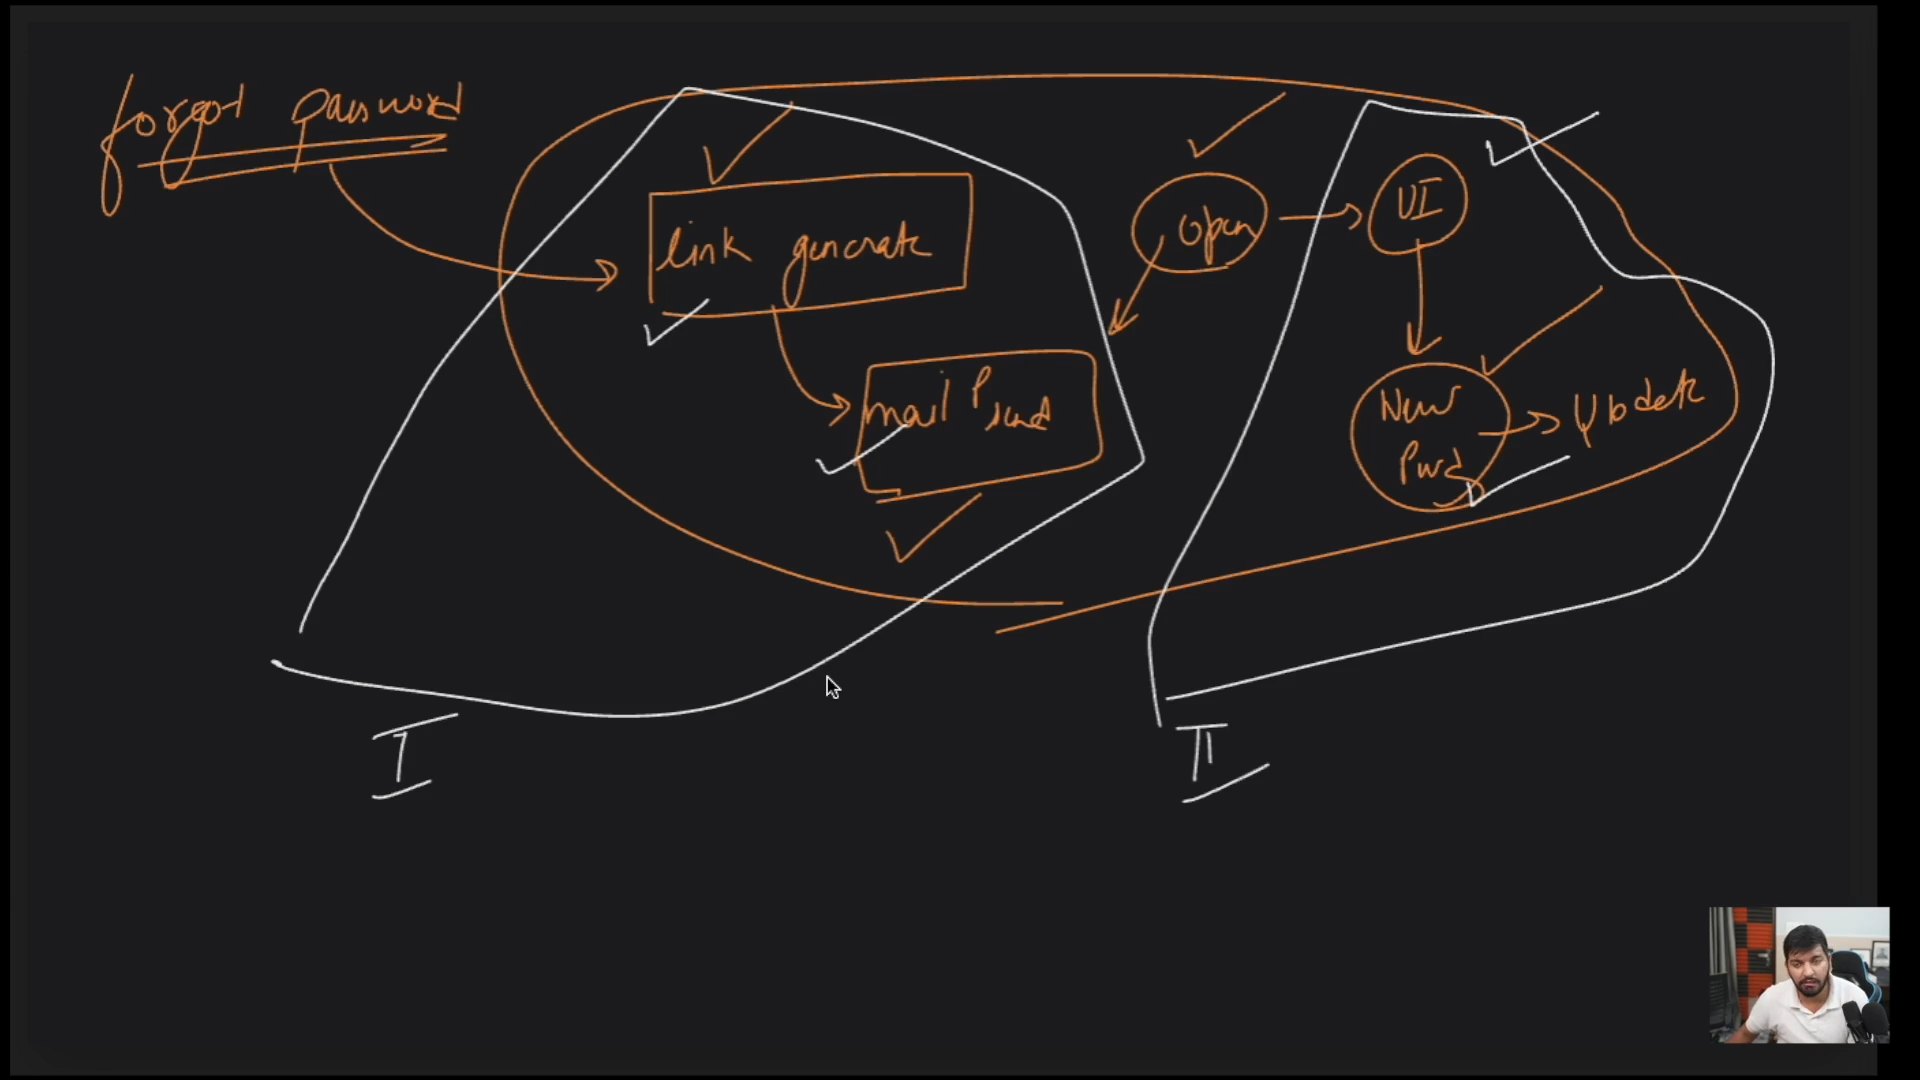 forgot password
link generate
mail send
open
UI
New
Pwd
Update
I
II